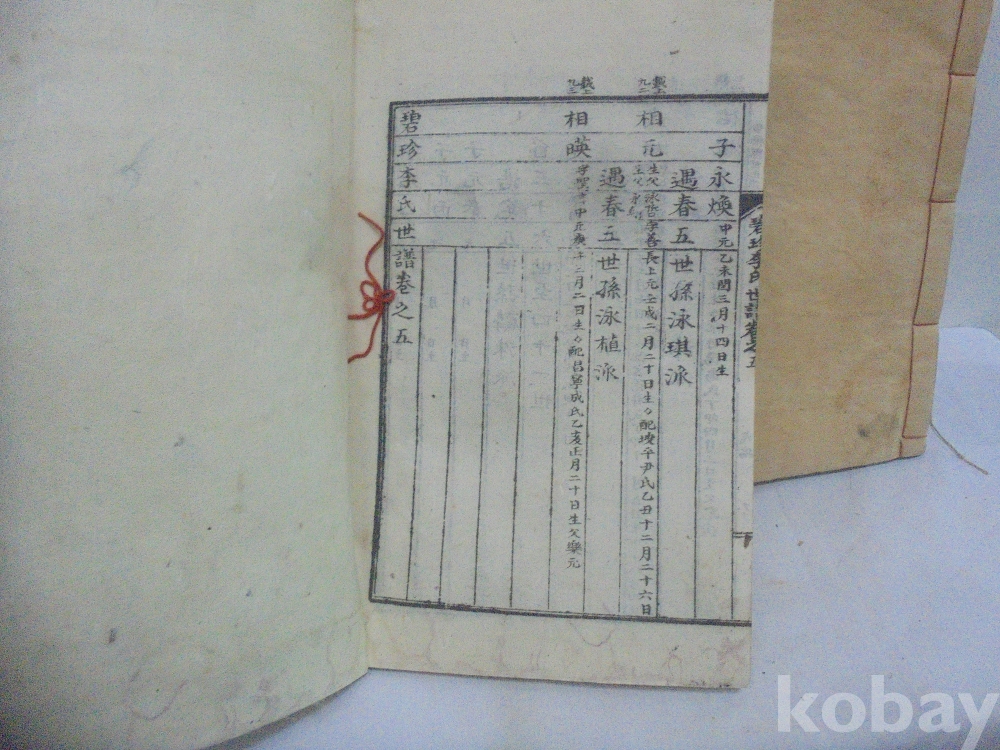 子永煥 中元乙未閏三月十四日生
遇春五世孫泳琪派
相 生父 善長上元壬戌二月二十日生 配坡平尹氏乙丑十二月二十六日
遇春五世孫泳植派
相暎 二月二日生 配昌寧成氏乙亥正月二十日生父樂元
碧珍李氏世譜卷之五
碧珍李氏世譜卷之五
kobay